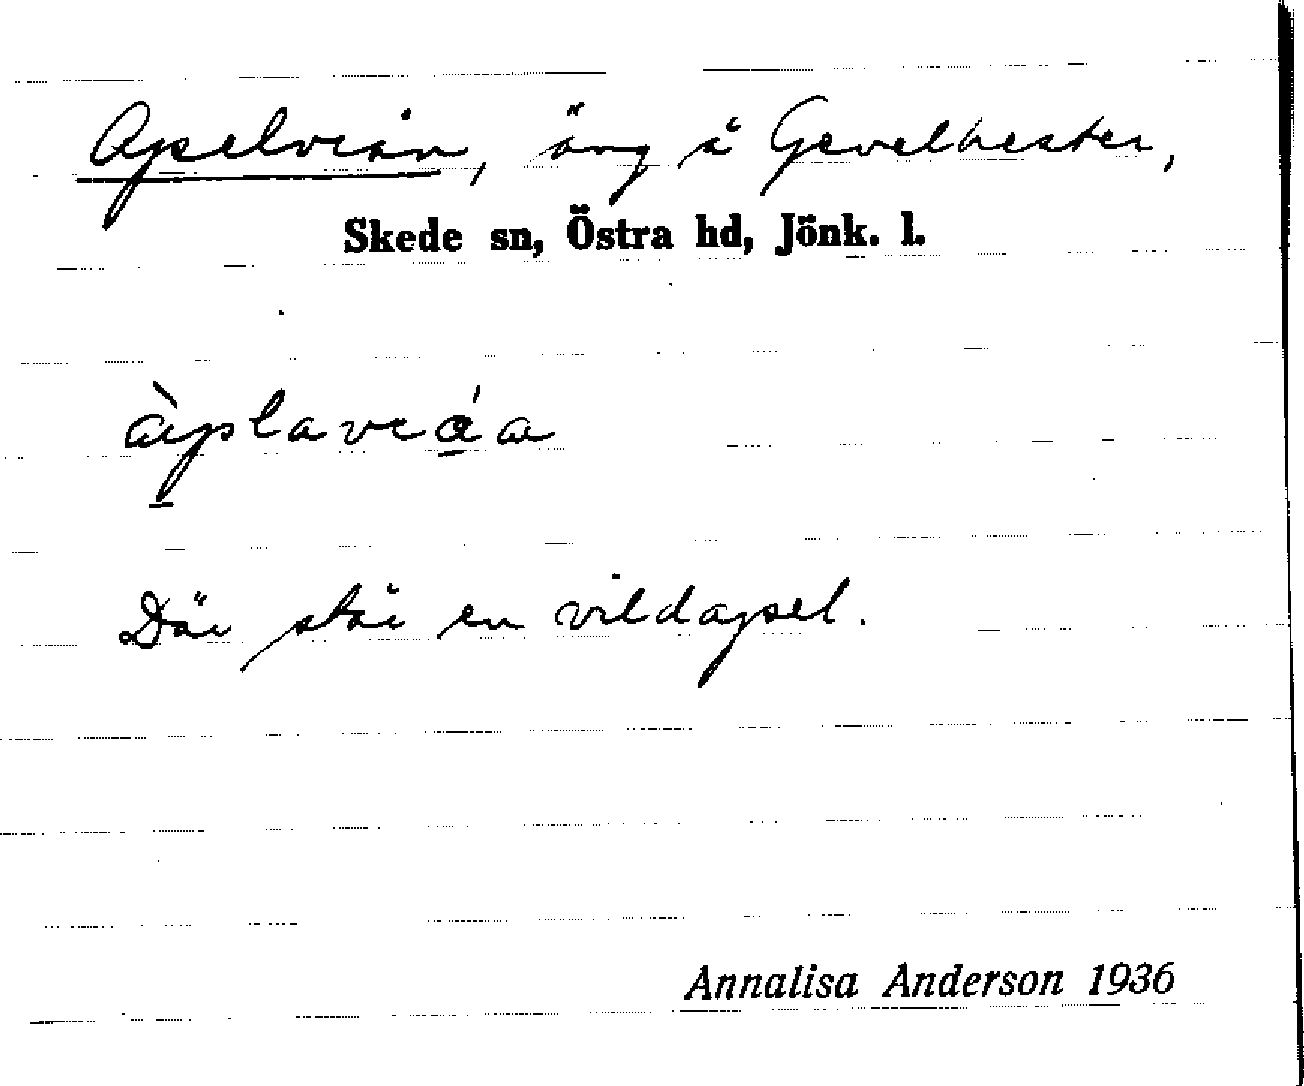 Apelvrån, äng å Gevelhester,
Skede sn, Östra hd, Jönk. l.
àplavráa
Där står en vildapel.
Annalisa Anderson 1936